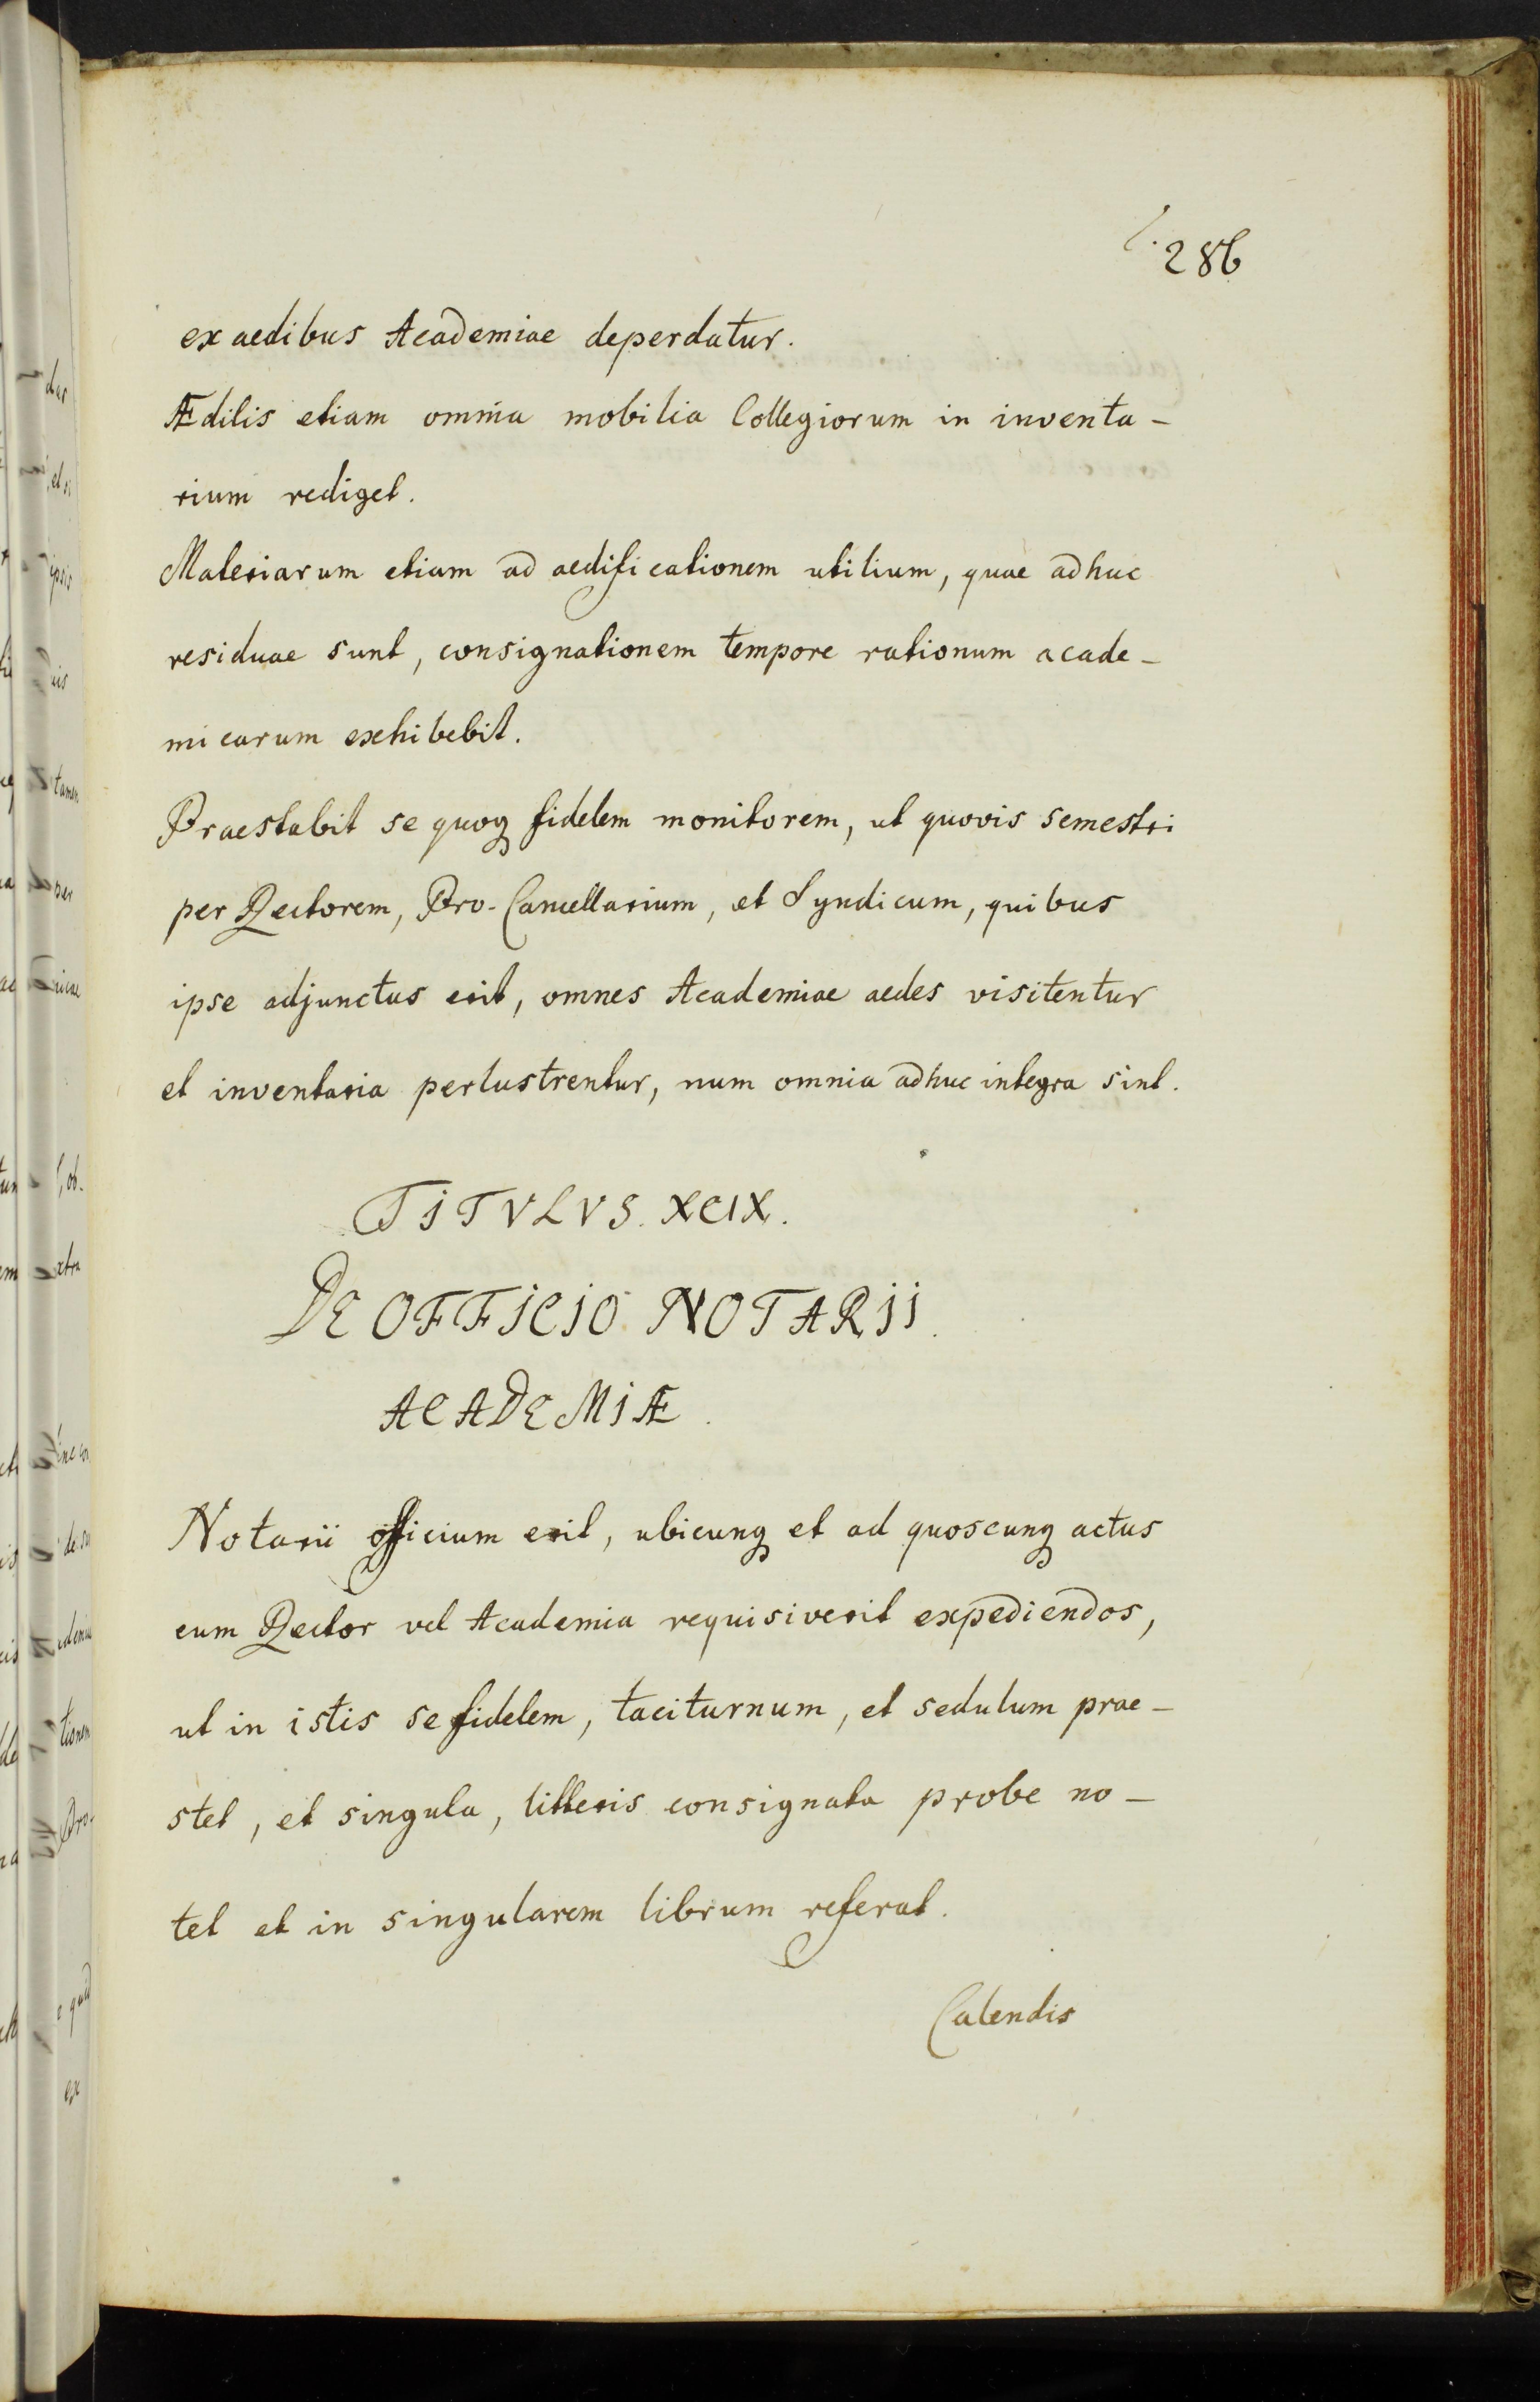 286
ex aedibus Academiae deperdatur.
Ædilis etiam omnia mobilia Collegiorum in inventa-
rium rediget.
Materiarum etiam ad aedificationem utilium, quae adhuc
residuae sunt, consignationem tempore rationum acade-
micarum exhibebit.
Praestabit se quoqꝫ fidelem monitorem, ut quovis semestri
per Rectorem, Pro-Cancellarium, et Syndicum, quibus
ipse adjunctus erit, omnes Academiae aedes visitentur
et inventaria perlustrentur, num omnia adhuc integra sint.
TITVLVS. XCIX.
DE OFFICIO NOTARII
ACADEMIÆ.
Notarii officium erit, ubicunqꝫ et ad quoscunqꝫ actus
eum Rector vel Academia requisiverit expediendos,
ut in istis se fidelem, taciturnum, et sedulum prae-
stet, et singula, litteris consignata probe no-
tet et in singularem librum referat.
Calendis